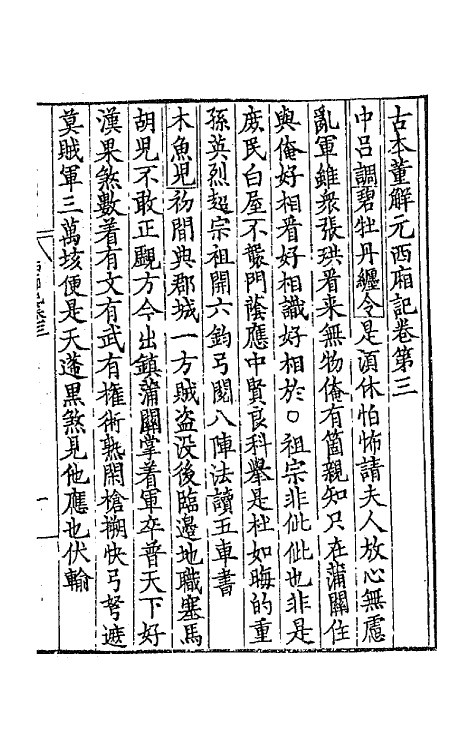 古本董解元西廂記卷第三
中呂調碧牡丹纏令是湏休怕怖請夫人放心無慮
亂軍雖衆張珙看来無物俺有箇親知只在蒲關住
與俺好相看好相識好相於○祖宗非仳仳也非是
庶民白屋不襲門蔭應中賢良科舉是杜如晦的重
孫英烈超宗祖開六鈞弓閱八陣法讀五車書
木魚兒初間典郡城一方賊盗没後臨邉地職塞馬
胡兒不敢正覷方今出鎮蒲關掌着軍卒普天下好
漢果煞數着有文有武有權術熟閑槍搠快弓弩遮
莫賊軍三萬垓便是天蓬黑煞見他應也伏輸
一